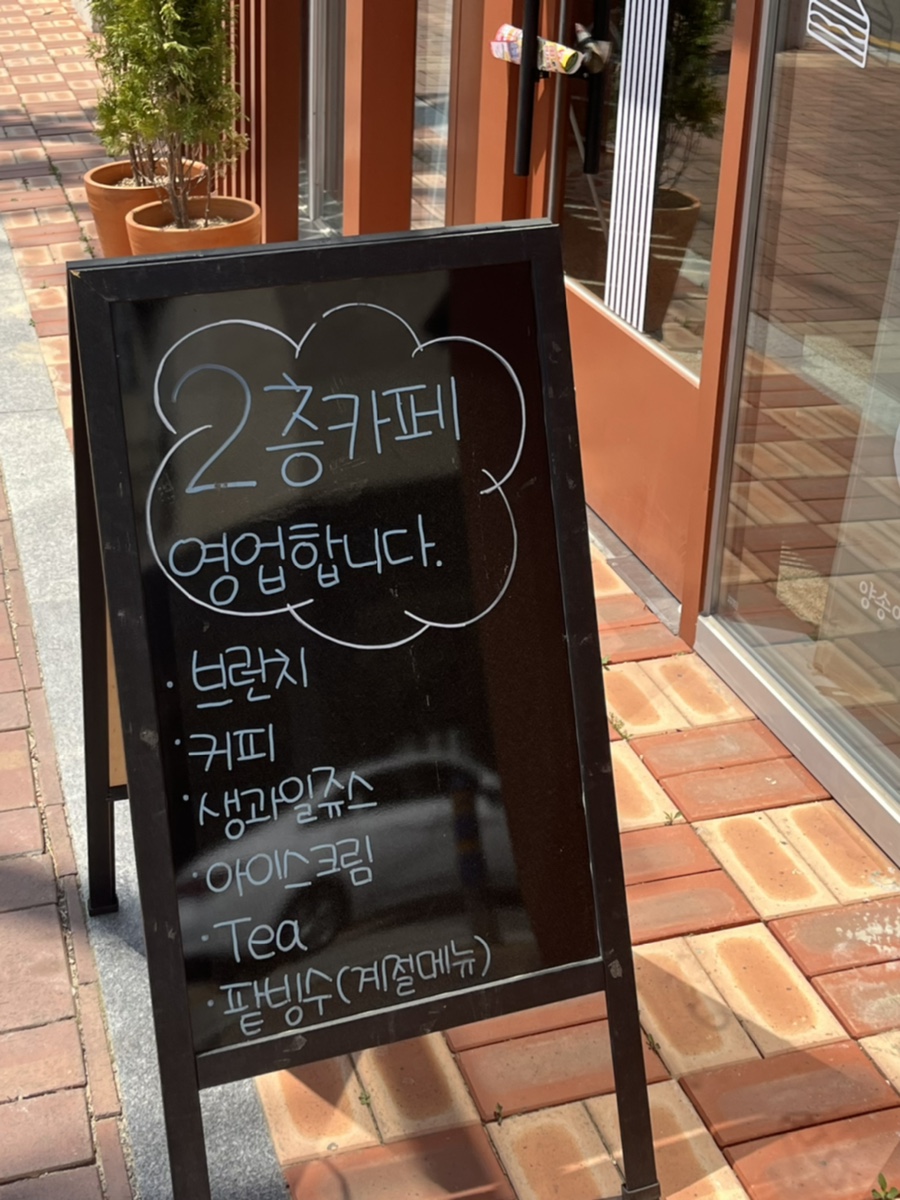 2층카페
영업합니다.
· 브런치
· 커피
· 생과일쥬스
· 아이스크림
· Tea
· 팥빙수(계절메뉴)